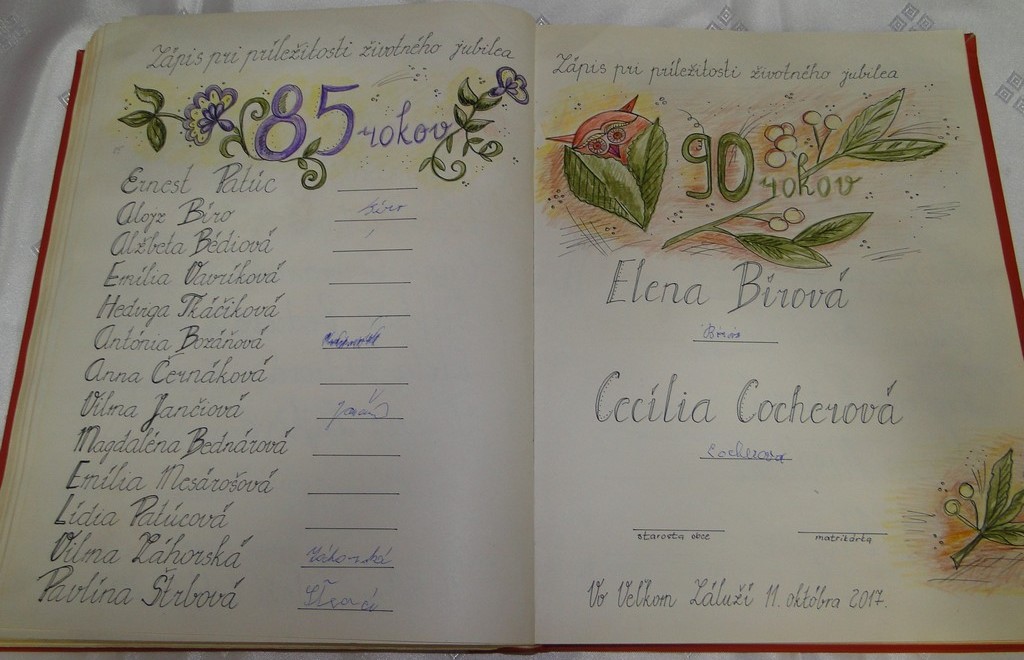 Zápis pri príležitosti životného jubilea
85 rokov
Ernest Patúc
Alojz Biro
Biro
Alžbeta Bédiová
Emília Vavríková
Hedviga Tkáčiková
Antónia Bozáňová
Anna Černáková
Vilma Jančiová
Magdaléna Bednárová
Emília Mesárošová
Lídia Patúcová
Vilma Záhorská
Záhorská
Pavlína Štrbová
Zápis pri príležitosti životného jubilea
90 rokov
Elena Bírová
Cecília Cocherová
Cocherová
starosta obce matrikárka
Vo Veľkom Záluží 11. októbra 2017.